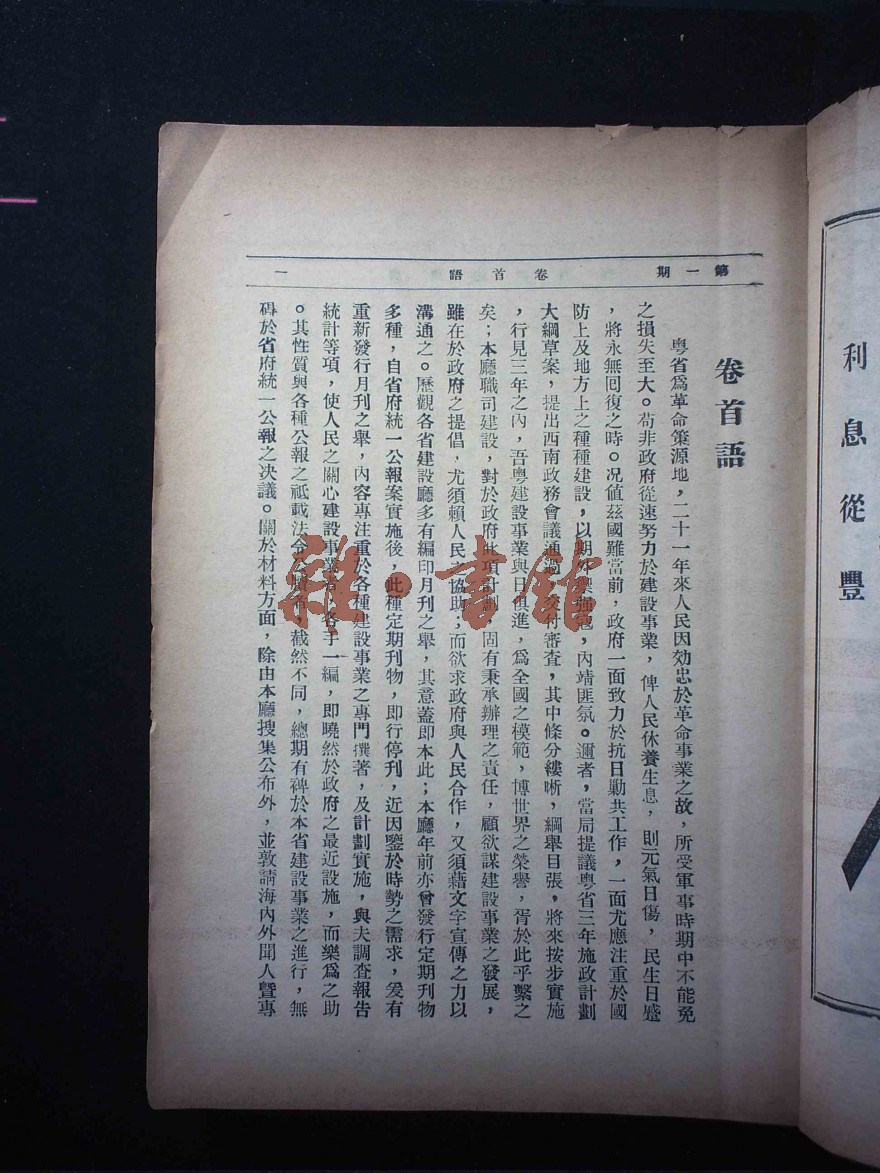 第一期
卷首語
一
卷首語
粵省爲革命策源地，二十一年來人民因効忠於革命事業之故，所受軍事時期中不能免
之損失至大。苟非政府從速努力於建設事業，俾人民休養生息，則元氣日傷，民生日蹙
，將永無回復之時。况値茲國難當前，政府一面致力於抗日勦共工作，一面尤應注重於國
防上及地方上之種種建設，以期外禦强寇，內靖匪氛。邇者，當局提議粵省三年施政計劃
大綱草案，提出西南政務會議通過，交付審查，其中條分縷晰，綱舉目張，將來按步實施
，行見三年之內，吾粵建設事業與日俱進，爲全國之模範，博世界之榮譽，胥於此乎繫之
矣；本廳職司建設，對於政府此項計劃，固有秉承辦理之責任，顧欲謀建設事業之發展，
雖在於政府之提倡，尤須賴人民之協助；而欲求政府與人民合作，又須藉文字宣傳之力以
溝通之。歷觀各省建設廳多有編印月刊之舉，其意蓋卽本此；本廳年前亦曾發行定期刊物
多種，自省府統一公報案實施後，此種定期刊物，卽行停刊，近因鑒於時勢之需求，爰有
重新發行月刊之舉，內容專注重於各種建設事業之專門撰著，及計劃實施，與夫調查報告
統計等項，使人民之關心建設事業者，各手一編，卽曉然於政府之最近設施，而樂爲之助
。其性質與各種公報之祗載法令公牘者，截然不同，總期有裨於本省建設事業之進行，無
碍於省府統一公報之决議。關於材料方面，除由本廳搜集公布外，並敦請海內外聞人曁專
利息從豐
雜·書館